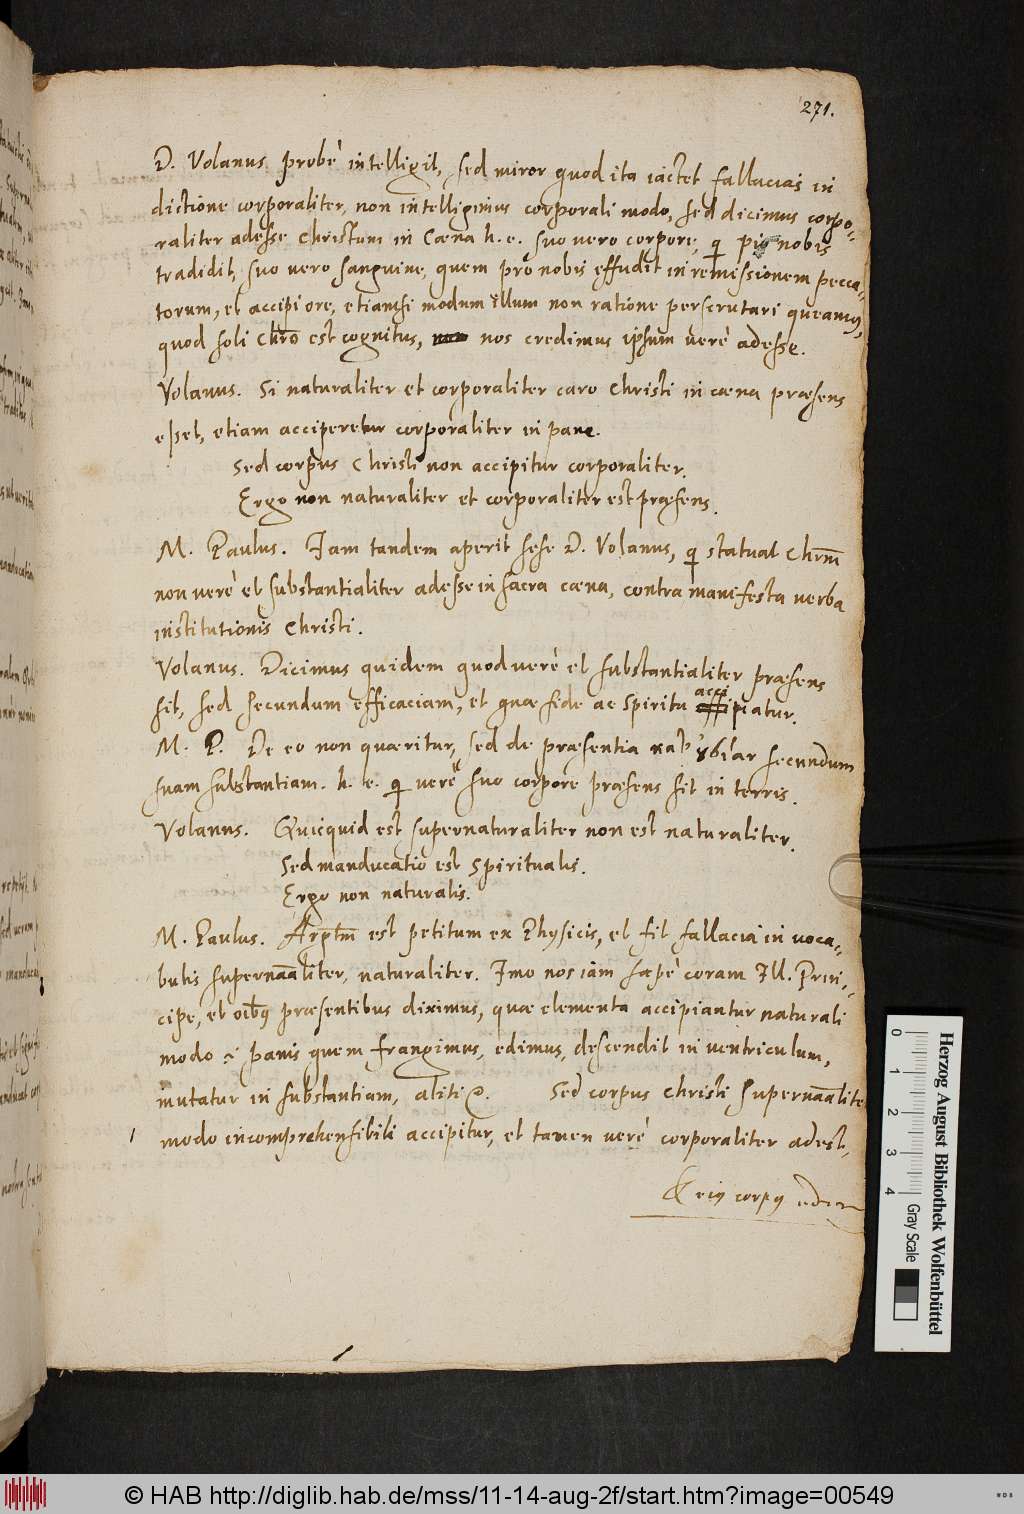 271.
D. Volanus probè intelligit, sed miror quod ita iactet fallacias in
dictione corporaliter, non intelligimus corporali modo, sed dicimus corpo-
raliter adesse Christum in Cœna h. e. suo vero corpore, q pro nobis
tradidit, suo vero sanguine, quem pro nobis effudit in remissionem pecca-
torum, et accipi ore, etiamsi modum illum non ratione perscrutari queamus,
quod soli Chro est cognitus, nos credimus ipsum verè adesse.
Volanus. Si naturaliter et corporaliter caro Christi in cæna præsens
esset, etiam acciperetur corporaliter in pane.
Sed corpus Christi non accipitur corporaliter.
Ergo non naturaliter et corporaliter est præsens.
M. Paulus. Iam tandem aperit sese D. Volanus, q statuat Chrm
non verè et substantialiter adesse in sacra cæna, contra manifesta verba
institutionis Christi.
Volanus. Dicimus quidem quod verè et substantialiter præsens
sit, sed secundum efficaciam, et quæ fide ac spiritu accipiatur.
M. P. De eo non quæritur, sed de præsentia secundum
suam substantiam. h. e. q verè suo corpore præsens sit in terris.
Volanus. Quicquid est supernaturaliter non est naturaliter.
Sed manducatio est spiritualis.
Ergo non naturalis.
M. Paulus. Argtm est petitum ex Physicis, et fit fallacia in voca-
bulis supernaāliter, naturaliter. Imo nos iam sæpè coram Ill. Prin-
cipe, et oibus præsentibus diximus, quæ elementa accipiantur naturali
modo panis quem frangimus, edimus, descendit in ventriculum,
mutatur in substantiam, aliti Sed corpus Christi supernaālite
modo incomprehensibili accipitur, et tamen verè corporaliter adest,
& eius corpus
Herzog August Bibliothek Wolfenbüttel
0 1 2 3 4 Gray Scale
© HAB http://diglib.hab.de/mss/11-14-aug-2f/start.htm?image=00549